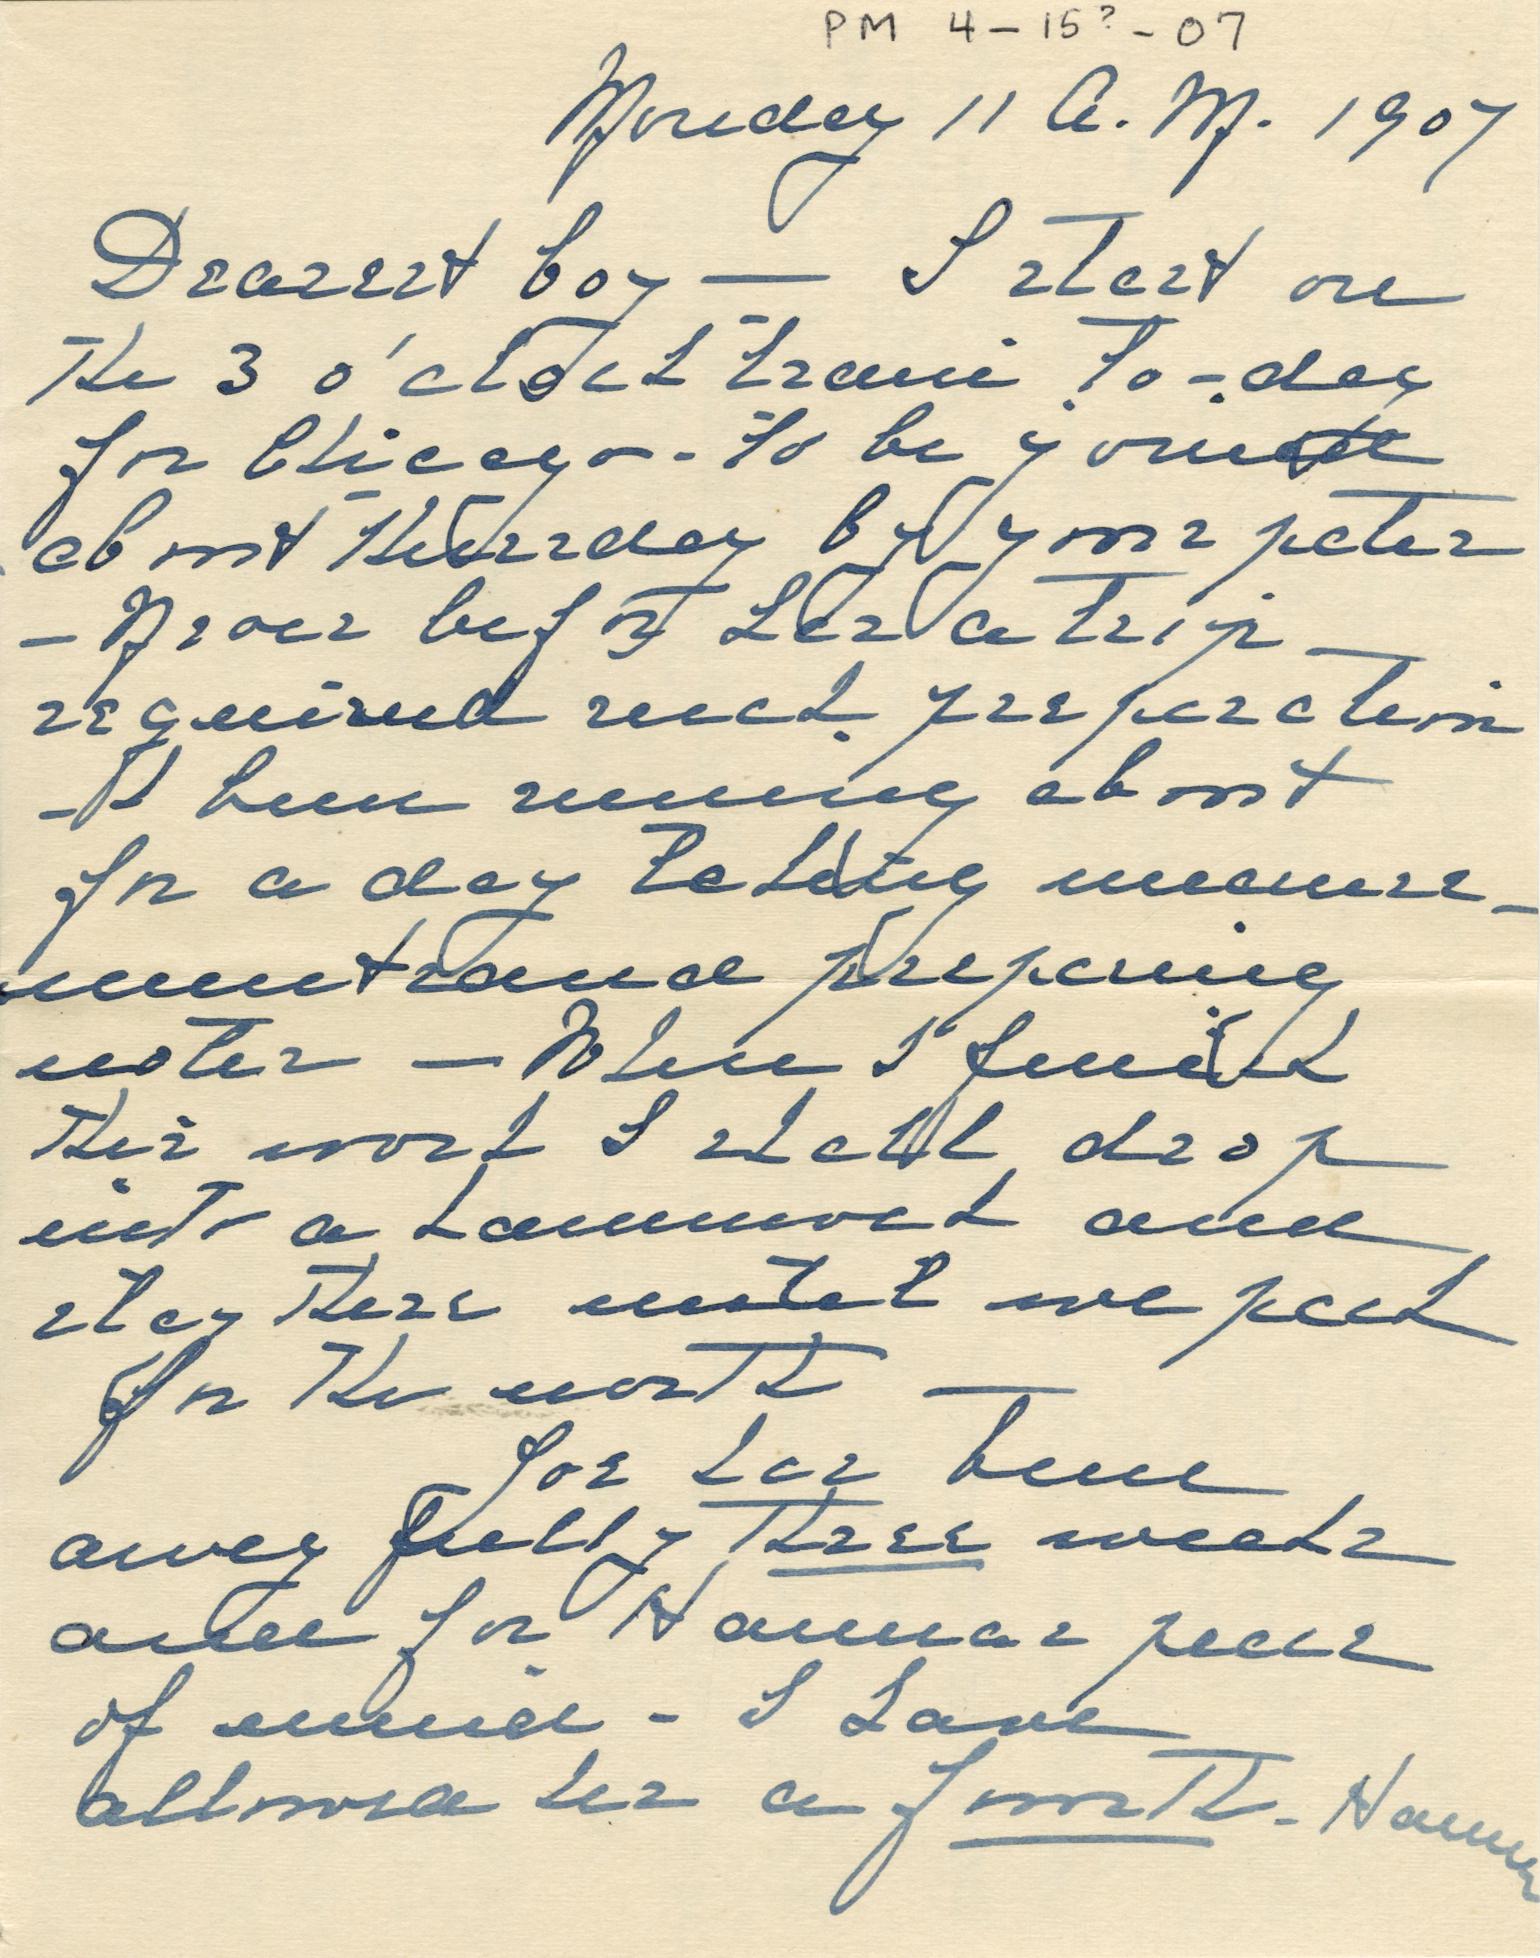 PM 4-15?-07
Monday 11 A.M. 1907
Dearest boy — I start on
the 3 o'clock train to-day
for Chicago - to be joined
about Thursday by your pater
- Never before has a trip
required such preparation
- I been running about
for a day taking measure-
ments and preparing
notes — When I finish
this work I shall drop
into a hammock and
stay there until we pack
for the north —
Joe has been
away fully three weeks
and for Hannas peace
of mind - I have
allowed her a fourth - Hanna